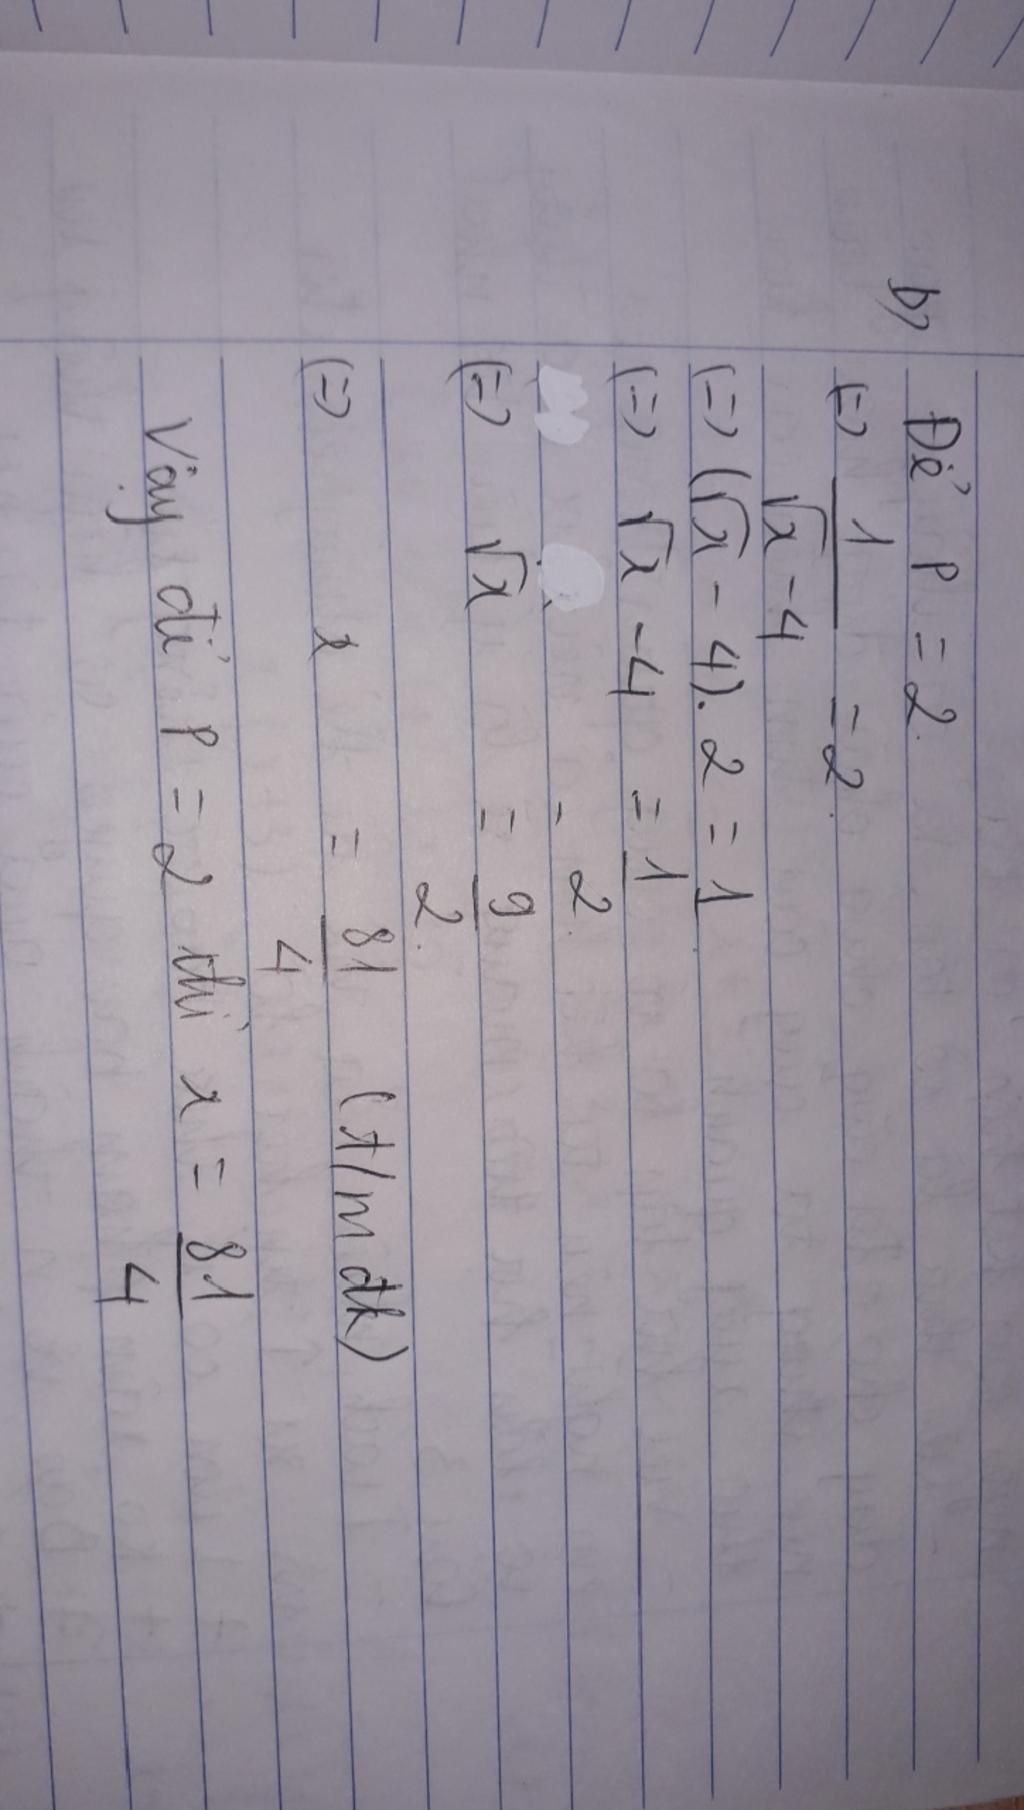 b) Để P = 2.
(=) 1/(√x - 4) = 2.
(=) (√x - 4). 2 = 1
(=) √x - 4 = 1/2
(=) √x = 9/2.
(=) x = 81/4 (t/m đk)
Vậy để P = 2 thì x = 81/4